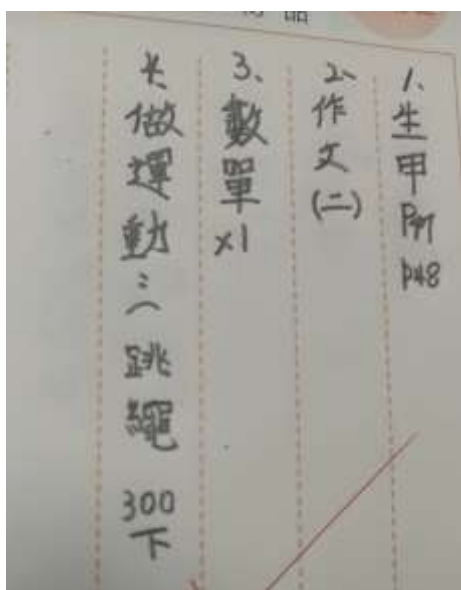 品
1、生甲P47 P48
2、作文(二)
3、數單x1
*、做運動:跳繩300下